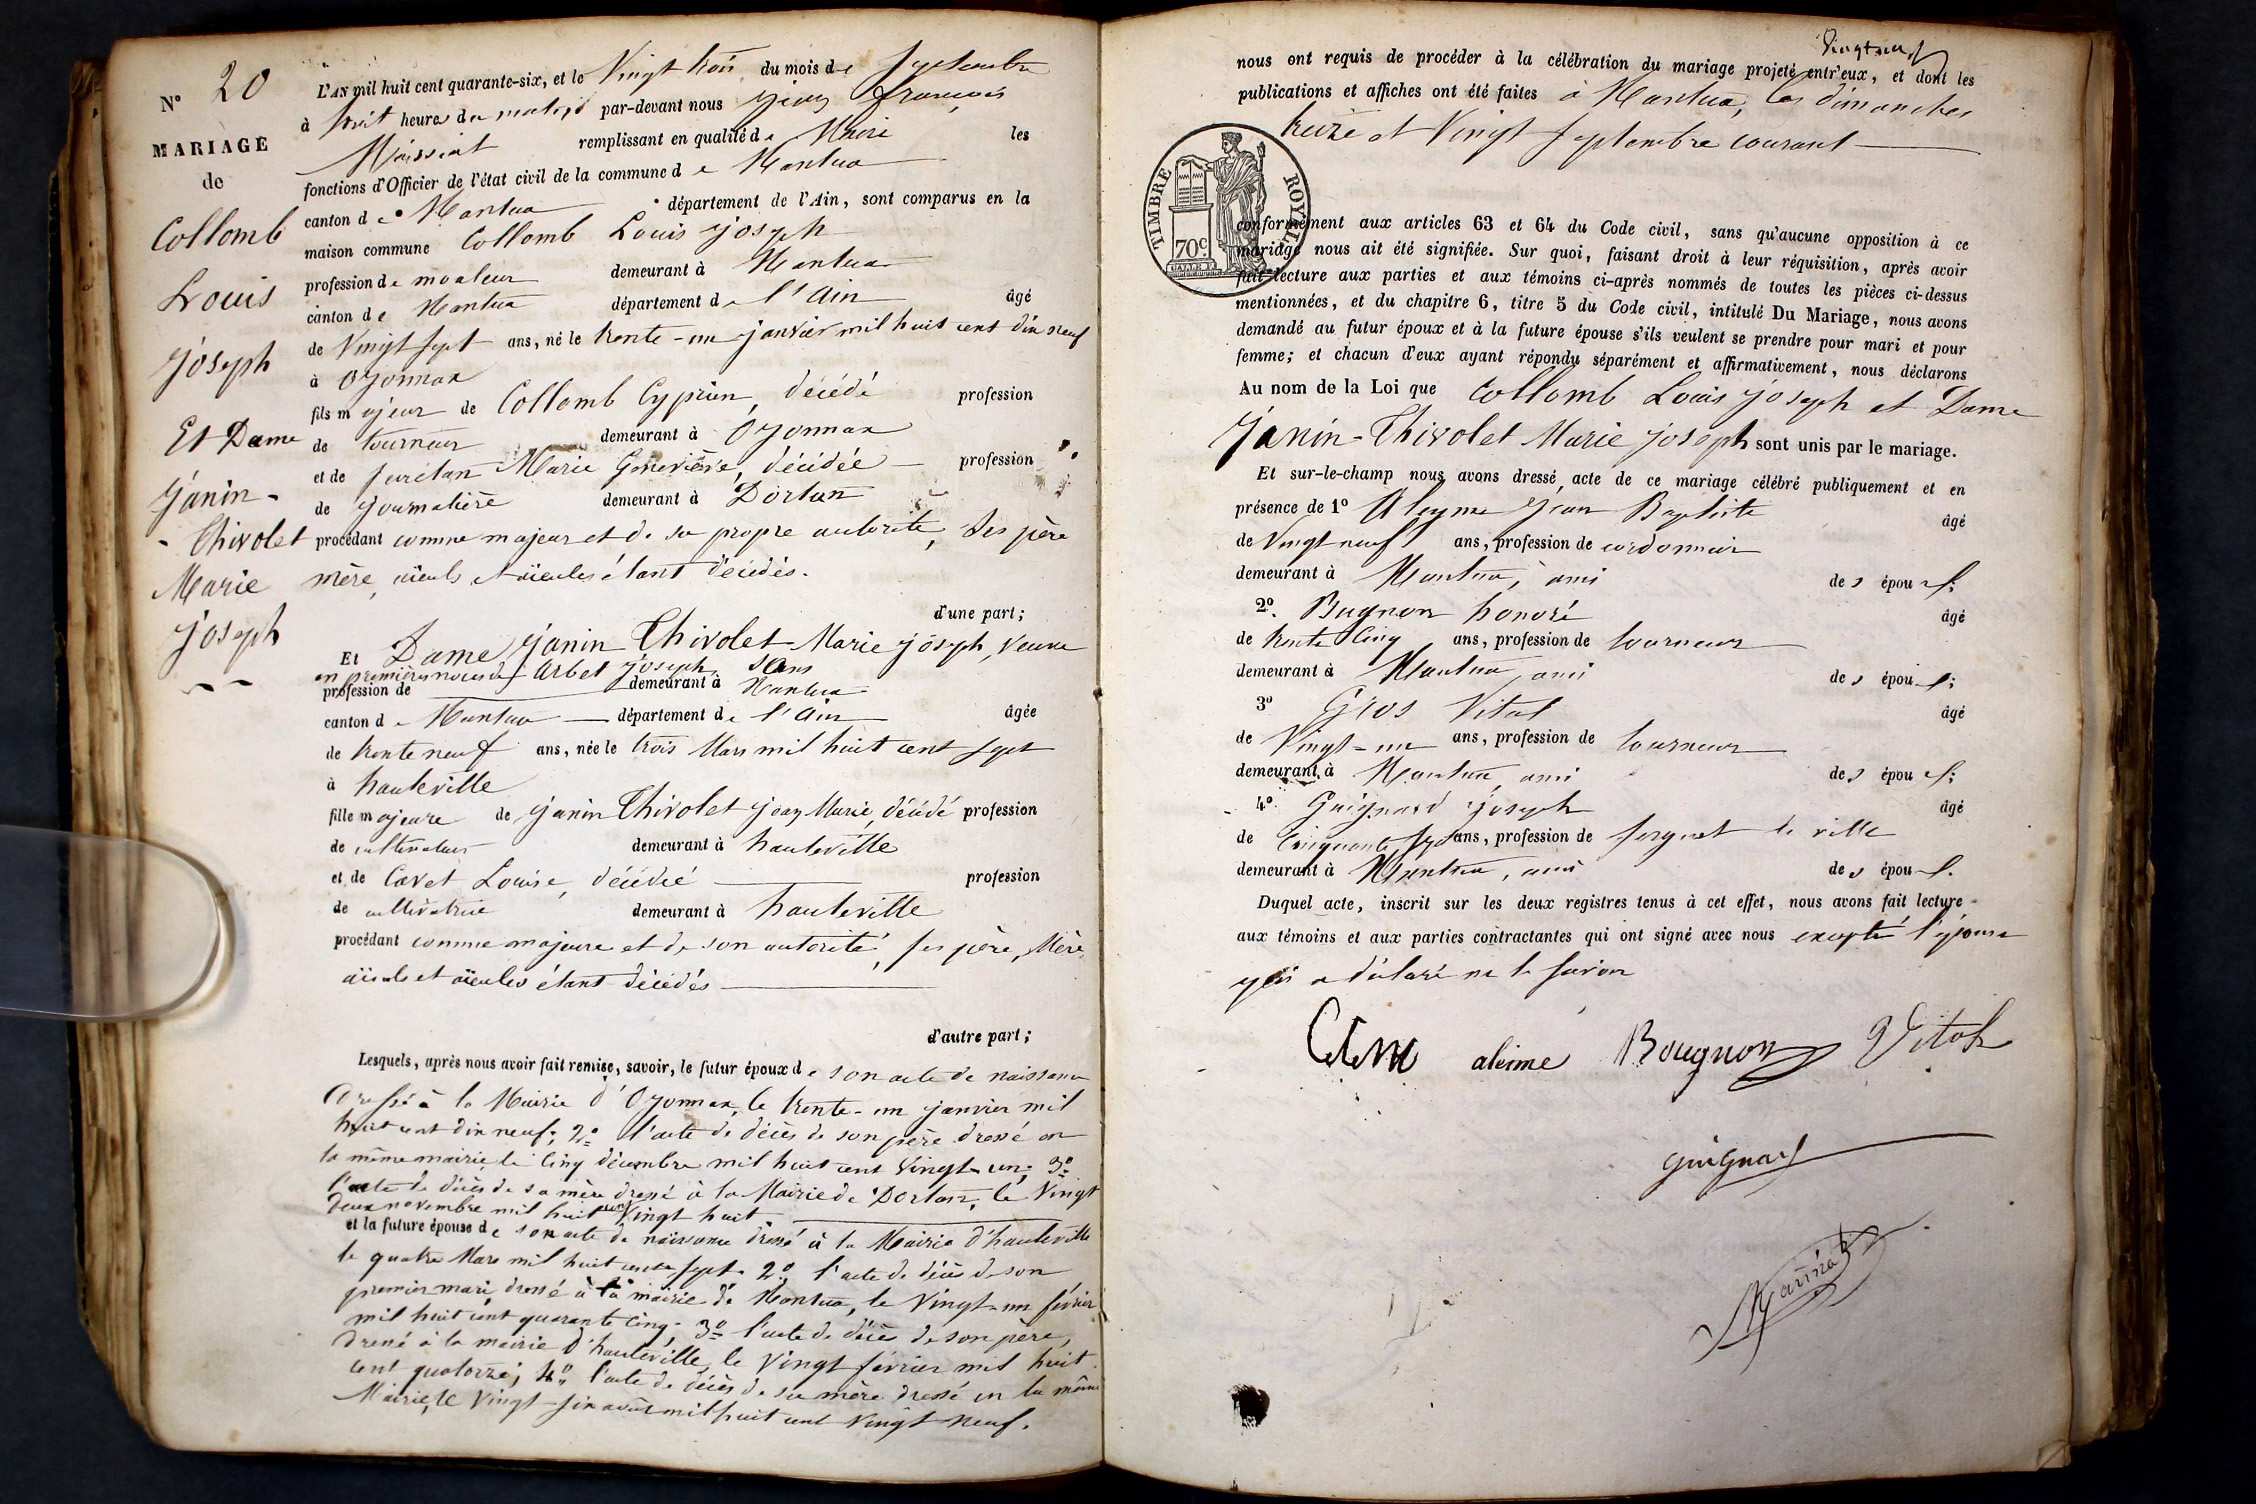 N° 20
MARIAGE
de
Collomb
Louis
joseph
Et Dame
janin-
-Thivolet
Marie
joseph
L'AN mil huit cent quarante-six, et le Vingt trois du mois de Septembre
à huit heures du matin par-devant nous jean françois
Maissiat remplissant en qualité de Maire les
fonctions d'Officier de l'état civil de la commune de Nantua
canton de Nantua département de l'Ain, sont comparus en la
maison commune Collomb Louis joseph
profession de mouleur demeurant à Nantua
canton de Nantua département de l'Ain âgé
de Vingt sept ans, né le trente-un janvier mil huit cent dix neuf
à Oyonnax
fils majeur de Collomb Cyprien, décédé profession
de tourneur demeurant à Oyonnax
et de Marie Genevieve, décédée profession
de journalière demeurant à Dortan
procédant comme majeur et de sa propre autorité, Ses père
mère, aïeuls et aïeules étant décédés.
d'une part;
Et Dame janin Thivolet Marie joseph, Veuve
en premières noces d'Arbet joseph, sans
profession de demeurant à Nantua
canton de Nantua département de l'Ain âgée
de trente neuf ans, née le trois Mars mil huit cent sept
à hauteville
fille majeure de janin Thivolet jean Marie, décédé profession
de cultivateur demeurant à hauteville
et de Cavet Louise, décédée profession
de cultivatrice demeurant à hauteville
procédant comme majeure et de son autorité, ses père, Mère,
aïeuls et aïeules étant décédés
d'autre part;
Lesquels, après nous avoir fait remise, savoir, le futur époux de son acte de naissance
dressé à la Mairie d'Oyonnax, le trente-un janvier mil
huit cent dix neuf; 2° l'acte de décès de son père dressé en
la même mairie, le cinq décembre mil huit cent vingt-un; 3°
l'acte de décès de sa mère dressé à la Mairie de Dortan, le Vingt
deux novembre mil huit cent Vingt huit.
et la future épouse de son acte de naissance dressé à la Mairie d'hauteville
le quatre Mars mil huit cent sept. 2° l'acte de décès de son
premier mari, dressé à la mairie de Nantua, le Vingt-un février
mil huit cent quarante cinq; 3° l'acte de décès de son père,
dressé à la mairie d'hauteville, le Vingt février mil huit
cent quatorze; 4° l'acte de décès de sa mère dressé en la même
Mairie, le Vingt-six août mil huit cent Vingt neuf.
Vingt neuf
nous ont requis de procéder à la célébration du mariage projeté entr'eux, et dont les
publications et affiches ont été faites à Nantua, les dimanches
treize et Vingt Septembre courant
TIMBRE ROYAL
70c
conformément aux articles 63 et 64 du Code civil, sans qu'aucune opposition à ce
mariage nous ait été signifiée. Sur quoi, faisant droit à leur réquisition, après avoir
fait lecture aux parties et aux témoins ci-après nommés de toutes les pièces ci-dessus
mentionnées, et du chapitre 6, titre 5 du Code civil, intitulé Du Mariage, nous avons
demandé au futur époux et à la future épouse s'ils veulent se prendre pour mari et pour
femme; et chacun d'eux ayant répondu séparément et affirmativement, nous déclarons
Au nom de la Loi que Collomb Louis joseph et Dame
janin-Thivolet Marie joseph sont unis par le mariage.
Et sur-le-champ nous avons dressé acte de ce mariage célébré publiquement et en
présence de 1° Aleyme jean Baptiste âgé
de Vingt neuf ans, profession de cordonnier
demeurant à Nantua, ami des époux;
2°. Bugnon honoré âgé
de trente cinq ans, profession de tourneur
demeurant à Nantua, ami des époux;
3° Gros Vital âgé
de Vingt-un ans, profession de tourneur
demeurant à Nantua, ami des époux;
4° Guignard joseph âgé
de cinquante sept ans, profession de sergent de ville
demeurant à Nantua, ami des époux.
Duquel acte, inscrit sur les deux registres tenus à cet effet, nous avons fait lecture
aux témoins et aux parties contractantes qui ont signé avec nous excepté l'épouse
qui a déclaré ne le savoir
aleime Bougnon Vital
guignard